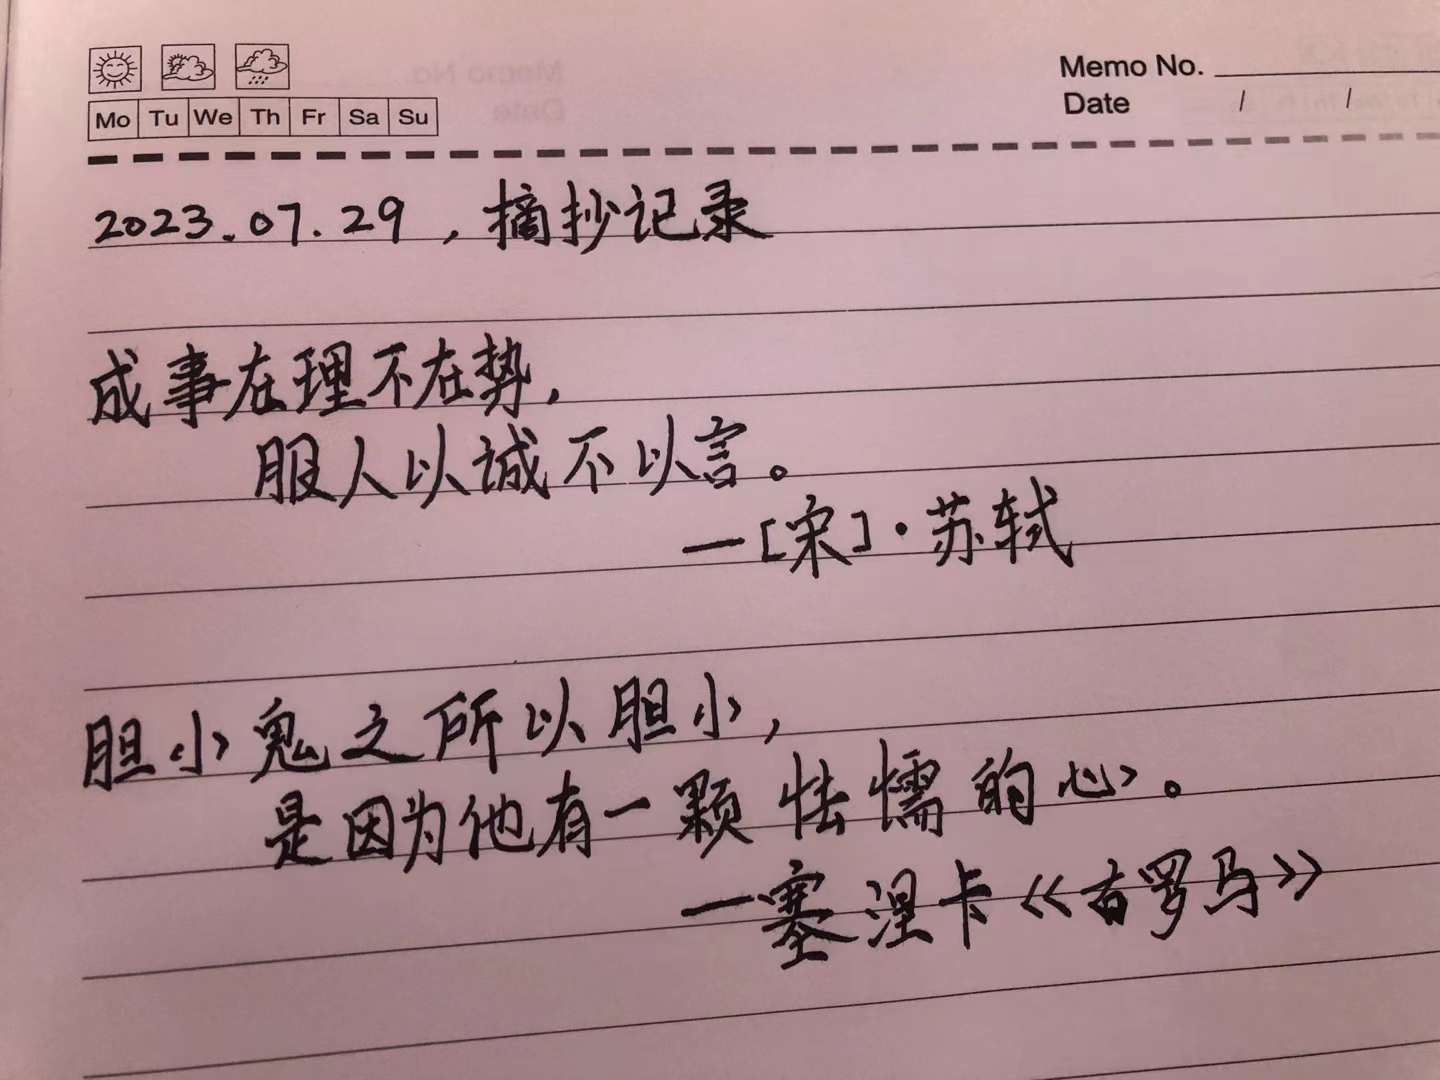 Memo No.
Mo Tu We Th Fr Sa Su
Date / /
2023.07.29，摘抄记录
成事在理不在势，
服人以诚不以言。
—[宋]·苏轼
胆小鬼之所以胆小，
是因为他有一颗怯懦的心。
—塞涅卡《古罗马》